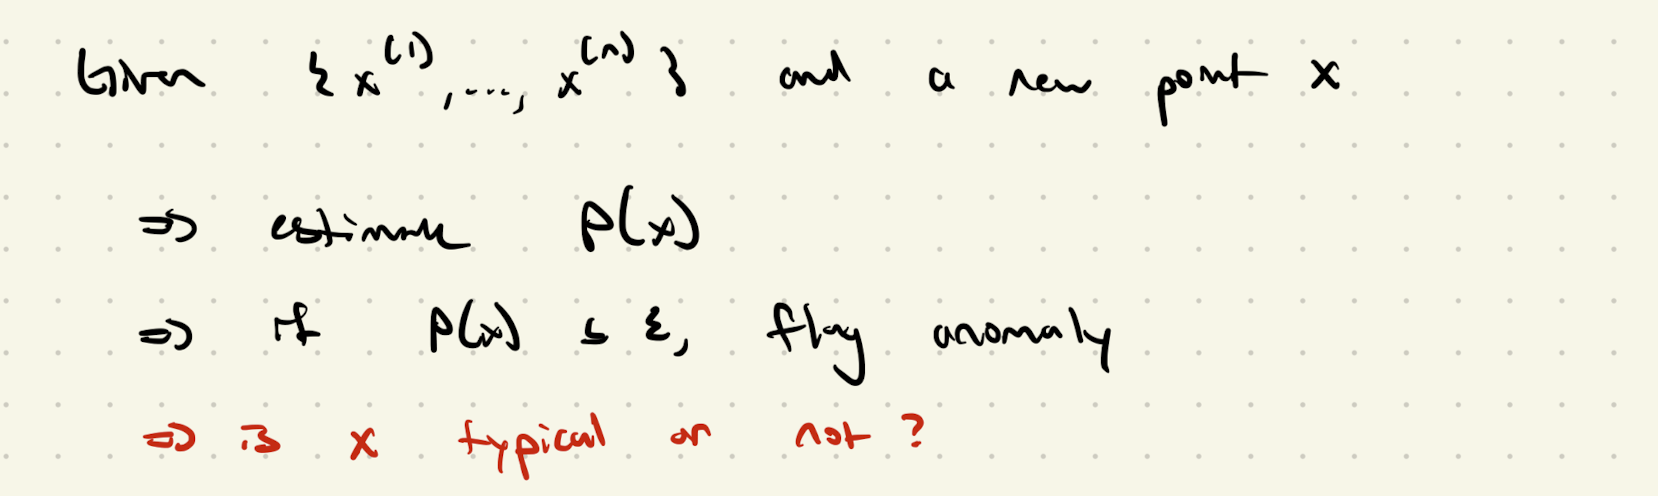 Given { x^(1), ..., x^(n) } and a new point x
⇒ estimate p(x)
⇒ if p(x) ≤ ε, flag anomaly
⇒ is x typical or not?